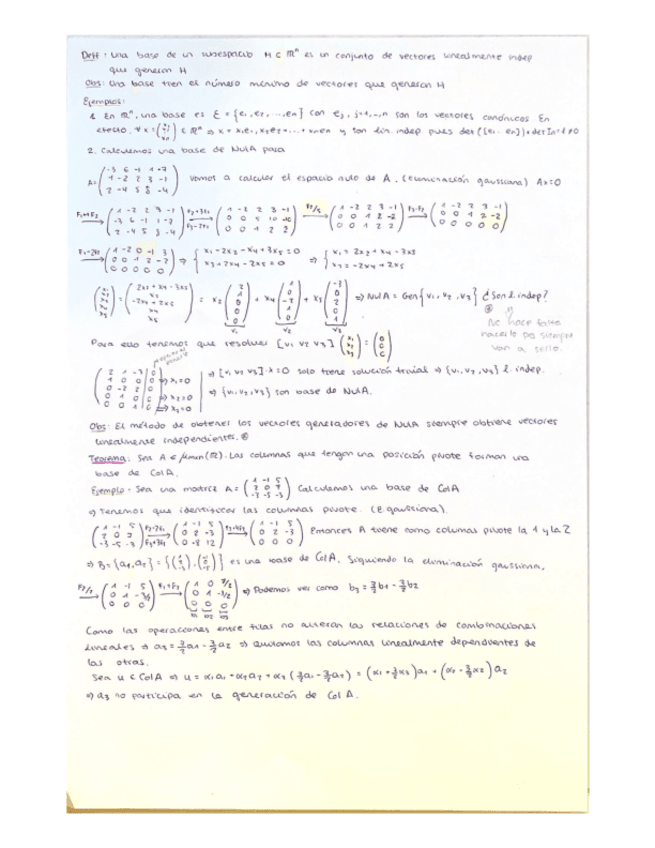 Deff: Una base de un subespacio H ⊂ ℝⁿ es un conjunto de vectores linealmente indep
que generan H
Obs: Una base tien el número mínimo de vectores que generan H
Ejemplos:
1. En ℝⁿ, una base es ξ = {e₁, e₂, ..., en} con ej, j=1,..,n son los vectores canónicos. En
efecto, ∀ x = (x₁ ⋮ xn) ∈ ℝⁿ ⇒ x = x₁e₁, x₂e₂ + ... + xnen y son lin. indep. pues det([e₁ ... en]) = det In = 1 ≠ 0
2. Calculemos una base de NulA para
A = (-3 6 -1 1 -7 / 1 -2 2 3 -1 / 2 -4 5 8 -4) vamos a calcular el espacio nulo de A. (Eliminación gaussiana) Ax=0
F₁↔F₂ → (1 -2 2 3 -1 / -3 6 -1 1 -7 / 2 -4 5 8 -4) F₂+3F₁ F₃-2F₁ → (1 -2 2 3 -1 / 0 0 5 10 -10 / 0 0 1 2 -2) F₂/5 → (1 -2 2 3 -1 / 0 0 1 2 -2 / 0 0 1 2 -2) F₃-F₂ → (1 -2 2 3 -1 / 0 0 1 2 -2 / 0 0 0 0 0)
F₁-2F₂ → (1 -2 0 -1 3 / 0 0 1 2 -2 / 0 0 0 0 0) ⇒ { x₁ - 2x₂ - x₄ + 3x₅ = 0 / x₃ + 2x₄ - 2x₅ = 0 ⇒ { x₁ = 2x₂ + x₄ - 3x₅ / x₃ = -2x₄ + 2x₅
(x₁ x₂ x₃ x₄ x₅) = (2x₂ + x₄ - 3x₅ / x₂ / -2x₄ + 2x₅ / x₄ / x₅) = x₂ (2 1 0 0 0) + x₄ (1 0 -2 1 0) + x₅ (-3 0 2 0 1) ⇒ NulA = Gen{v₁, v₂, v₃} ¿Son l. indep?
v₁ v₂ v₃
No hace falta
hacerlo pq siempre
van a serlo.
Para ello tenemos que resolver [v₁ v₂ v₃] (x₁ x₂ x₃) = (0 0 0)
(2 1 -3 | 0 / 1 0 0 | 0 / 0 -2 2 | 0 / 0 1 0 | 0 / 0 0 1 | 0) ⇒ x₁=0 ⇒ x₂=0 ⇒ x₃=0 ⇒ [v₁ v₂ v₃]·x = 0 solo tiene solución trivial ⇒ {v₁, v₂, v₃} l. indep.
⇒ {v₁, v₂, v₃} son base de NulA.
Obs: El método de obtener los vectores generadores de NulA siempre obtiene vectores
linealmente independientes. ⊛
Teorema: Sea A ∈ Mmxn(ℝ). Las columnas que tengan una posición pivote forman una
base de ColA.
Ejemplo: Sea una matriz A = (1 -1 5 / 2 0 7 / -3 -5 -3) Calculemos una base de ColA
⇒ Tenemos que identificar las columnas pivote. (E. gaussiana).
(1 -1 5 / 2 0 7 / -3 -5 -3) F₂-2F₁ F₃+3F₁ → (1 -1 5 / 0 2 -3 / 0 -8 12) F₃+4F₂ → (1 -1 5 / 0 2 -3 / 0 0 0) Entonces A tiene como columnas pivote la 1 y la 2
⇒ B = {a₁, a₂} = {(1 2 -3), (-1 0 -5)} es una base de ColA. Siguiendo la eliminación gaussiana,
F₂/2 → (1 -1 5 / 0 1 -3/2 / 0 0 0) F₁+F₂ → (1 0 7/2 / 0 1 -3/2 / 0 0 0) ⇒ Podemos ver como b₃ = 7/2 b₁ - 3/2 b₂
b₁ b₂ b₃
Como las operaciones entre filas no alteran las relaciones de combinaciones
lineales ⇒ a₃ = 7/2 a₁ - 3/2 a₂ ⇒ Quitamos las columnas linealmente dependientes de
las otras.
Sea u ∈ ColA ⇒ u = α₁a₁ + α₂a₂ + α₃(7/2 a₁ - 3/2 a₂) = (α₁ + 7/2 α₃)a₁ + (α₂ - 3/2 α₃)a₂
⇒ a₃ no participa en la generación de Col A.